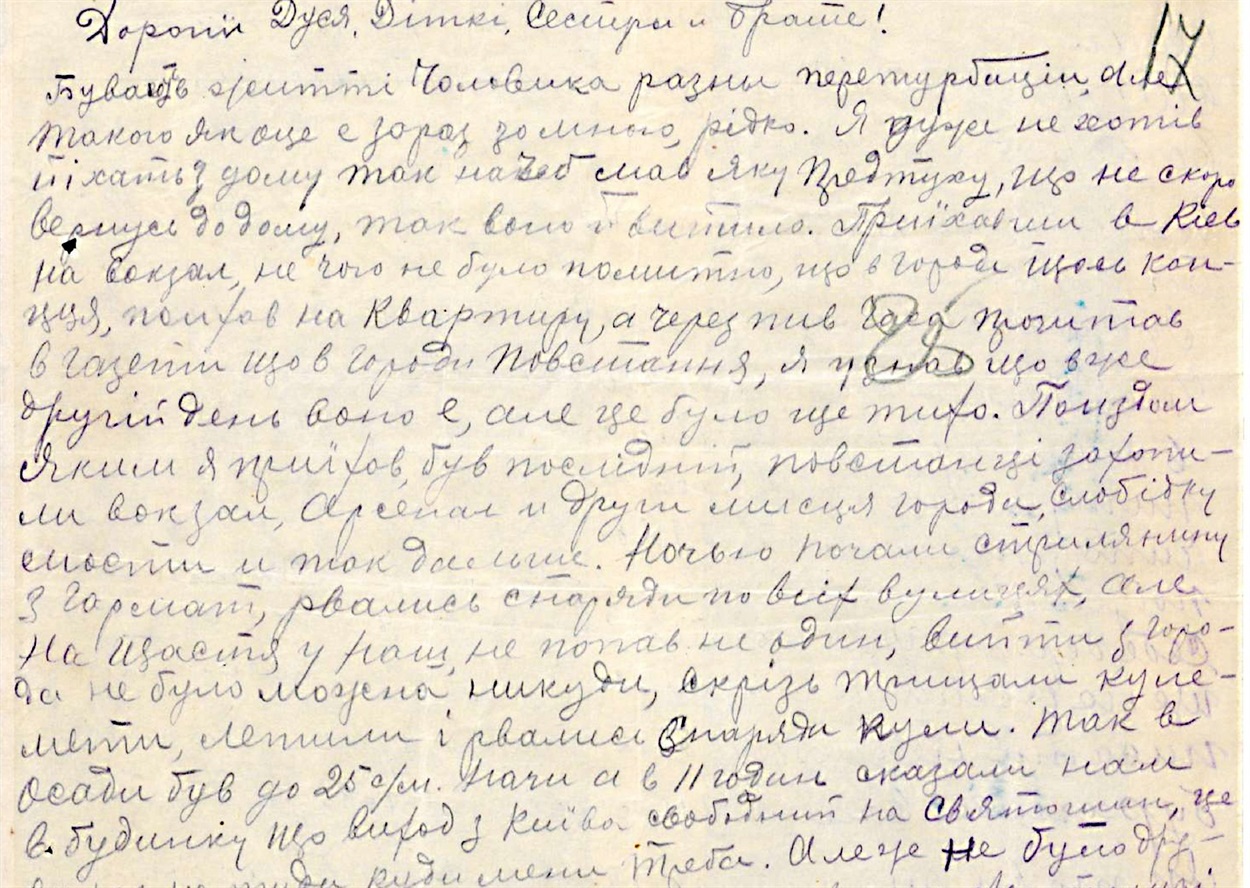 Дорогии Дуся, Діткі, Сестри и брате! 17
Буваєть в житті Чоловика разни пертурбациіи, але
такого як оце є зараз зо мною, рідко. Я дуже не хотів
їіхать з дому так наче б мав яку предтуху, що не скоро
вернусь додому, так воно й витшло. Приїхавши в Киев
на вокзал, не чого не було помитно, що в городи щось кои-
тця, поихав на Квартиру, а через пив Часа прочитав
в газети що в городи Повстання, я узнав що вже
другій день воно є, але це було ще тихо. Поизд
яким я приїхов, був послідній, повстанці захопи-
ли вокзал, Арсенал и други мисця города, слобідку
мости и так дальше. Ночью почали стрилянину
з гармат, рвались снаряди по всіх вулицях, але
на щастя у наш, не попав не один, вийти з горо-
да не було можна никуди, скрізь трищали куле-
мети, летили і рвались Снаряди кули. Так в
осади був до 25 с/м. Ночи а в 11 годин сказали нам
в будинку що виход з Київа свободний на Святошин, це
не туди куди мени треба. Але це не було дру-